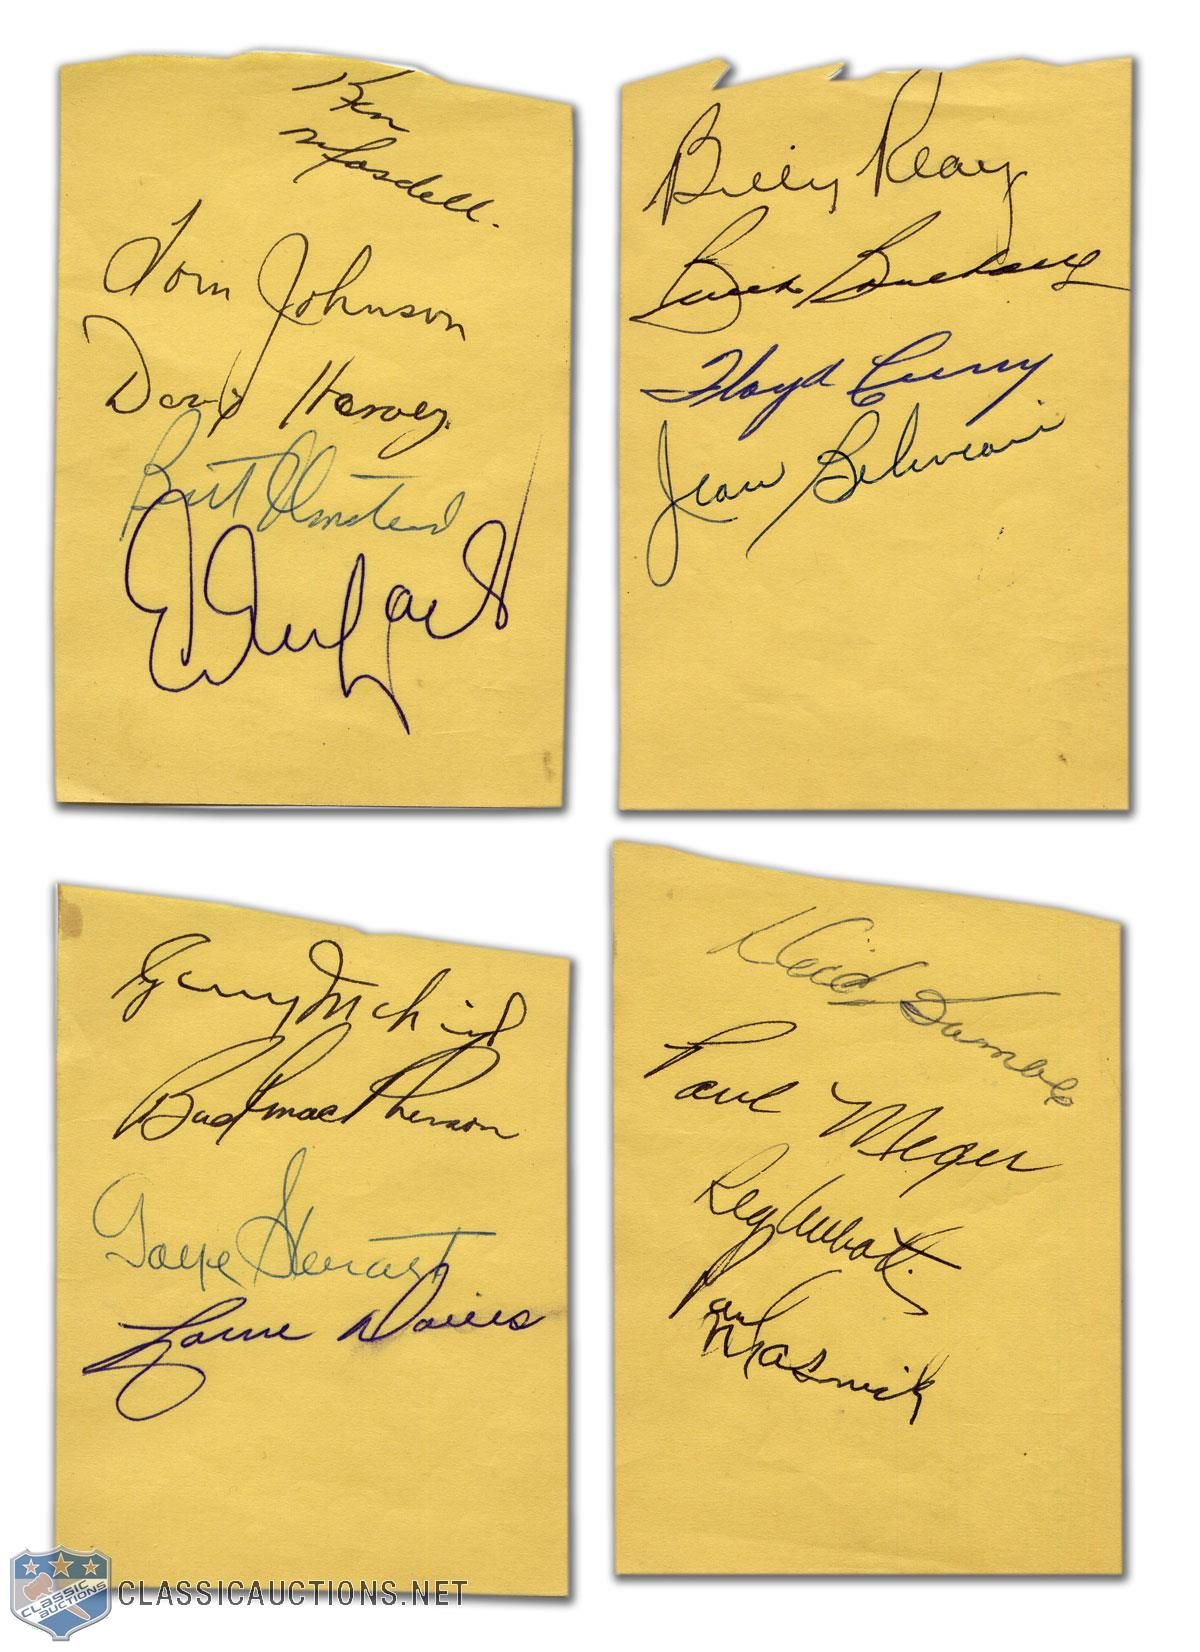 Ken
Mosdell.
Tom Johnson
Doug Harvey
Bert Olmstead
E Mazur
Billy Reay
Butch Bouchard
Floyd Curry
Jean Beliveau
Gerry McNeil
Bud MacPherson
Gaye Stewart
Lorne Davis
Dick Gamble
Paul Meger
Reg Abbott.
Paul
Masnick
CLASSIC
AUCTIONS
CLASSICAUCTIONS.NET